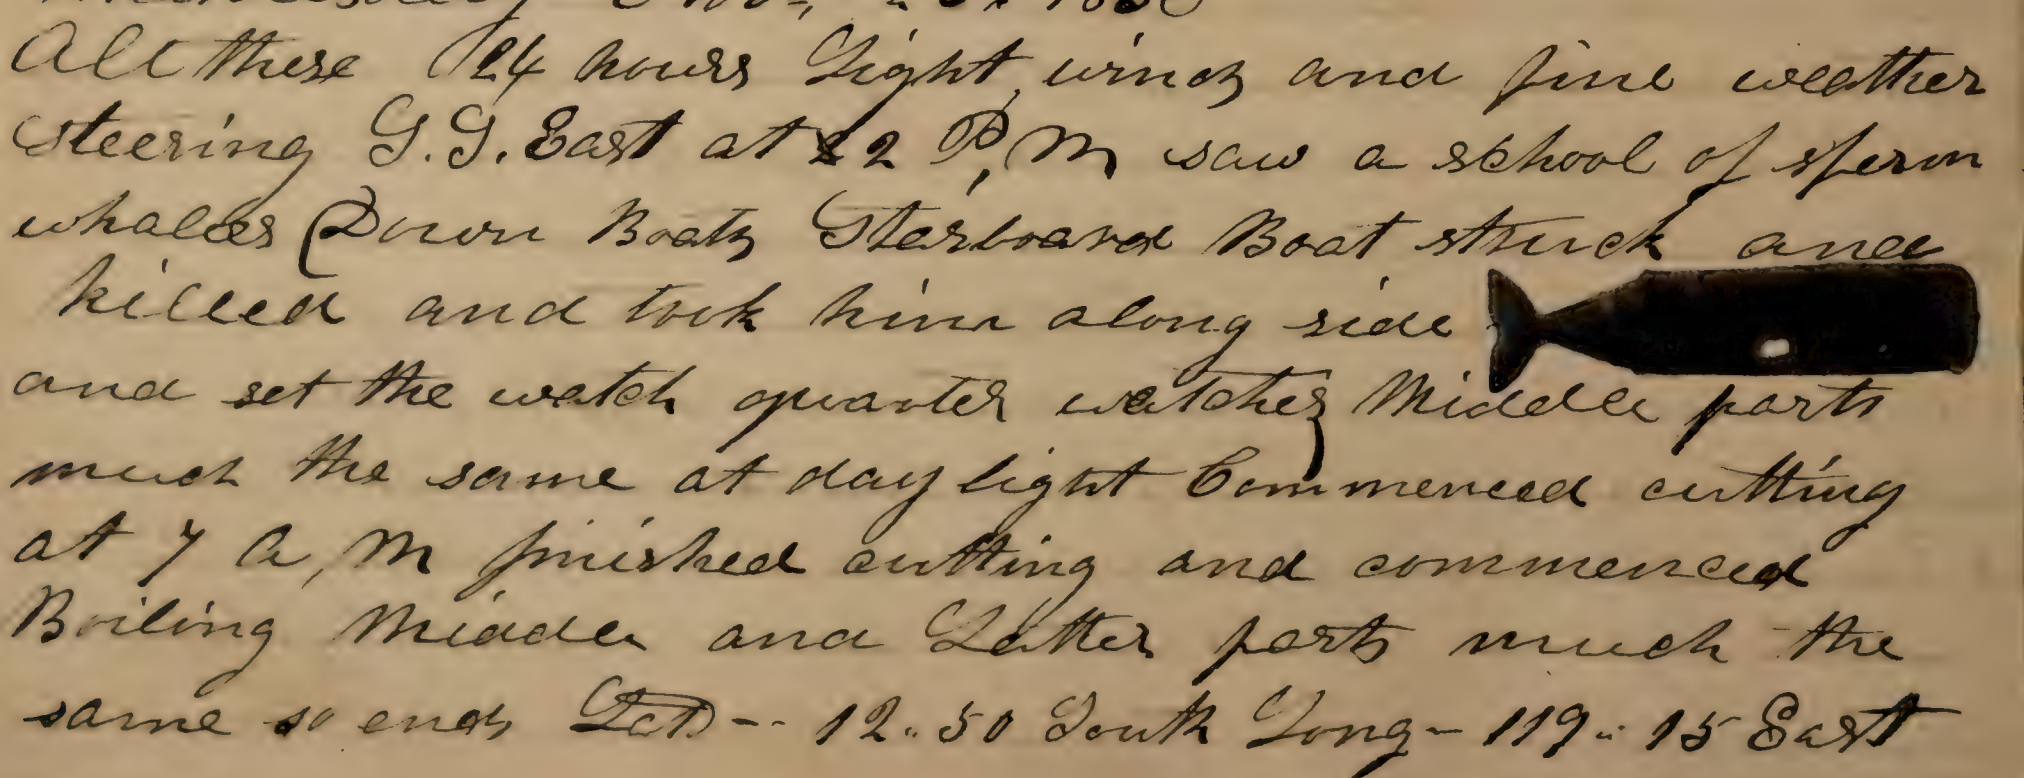 All these 24 hours Light winds and fine weather
steering S.S. East at 2 P,M saw a school of sperm
whales Down Boats Starboard Boat struck and
killed and took him along side
and set the watch quarter watches Middle parts
much the same at day light Commenced cutting
at 7 A,M finished cutting and commenced
Boiling Middle and Latter parts much the
same so ends Lat -- 12.. 50 South Long - 119.. 15 East